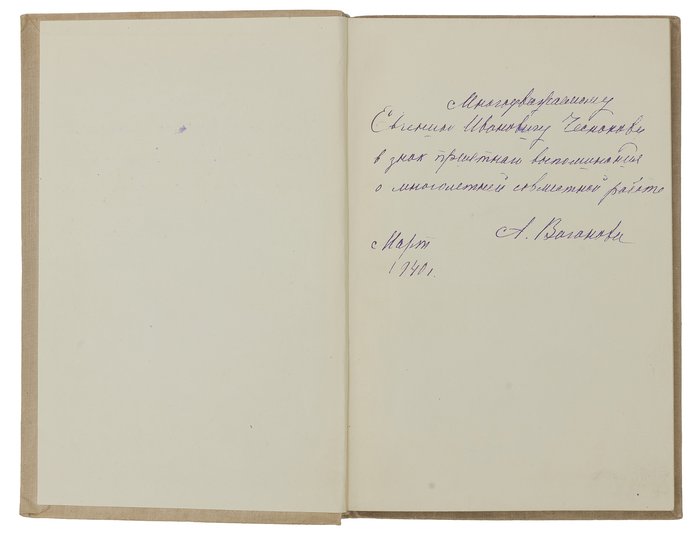 Многоуважаемому
Евгению Ивановичу Чеснокову
в знак приятного воспоминания
о многолетней совместной работе
А. Ваганова
Март
1940г.